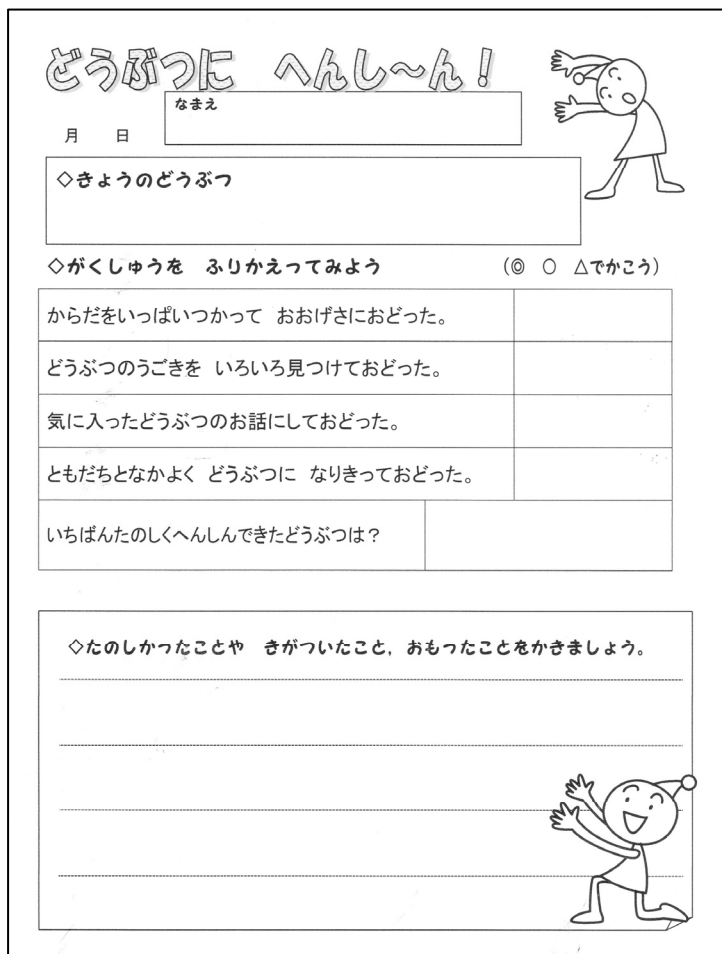 どうぶつに へんし～ん！
なまえ
月 日
◇きょうのどうぶつ
◇がくしゅうを ふりかえってみよう (◎ ○ △でかこう)
からだをいっぱいつかって おおげさにおどった。
どうぶつのうごきを いろいろ見つけておどった。
気に入ったどうぶつのお話にしておどった。
ともだちとなかよく どうぶつに なりきっておどった。
いちばんたのしくへんしんできたどうぶつは？
◇たのしかったことや きがついたこと，おもったことをかきましょう。